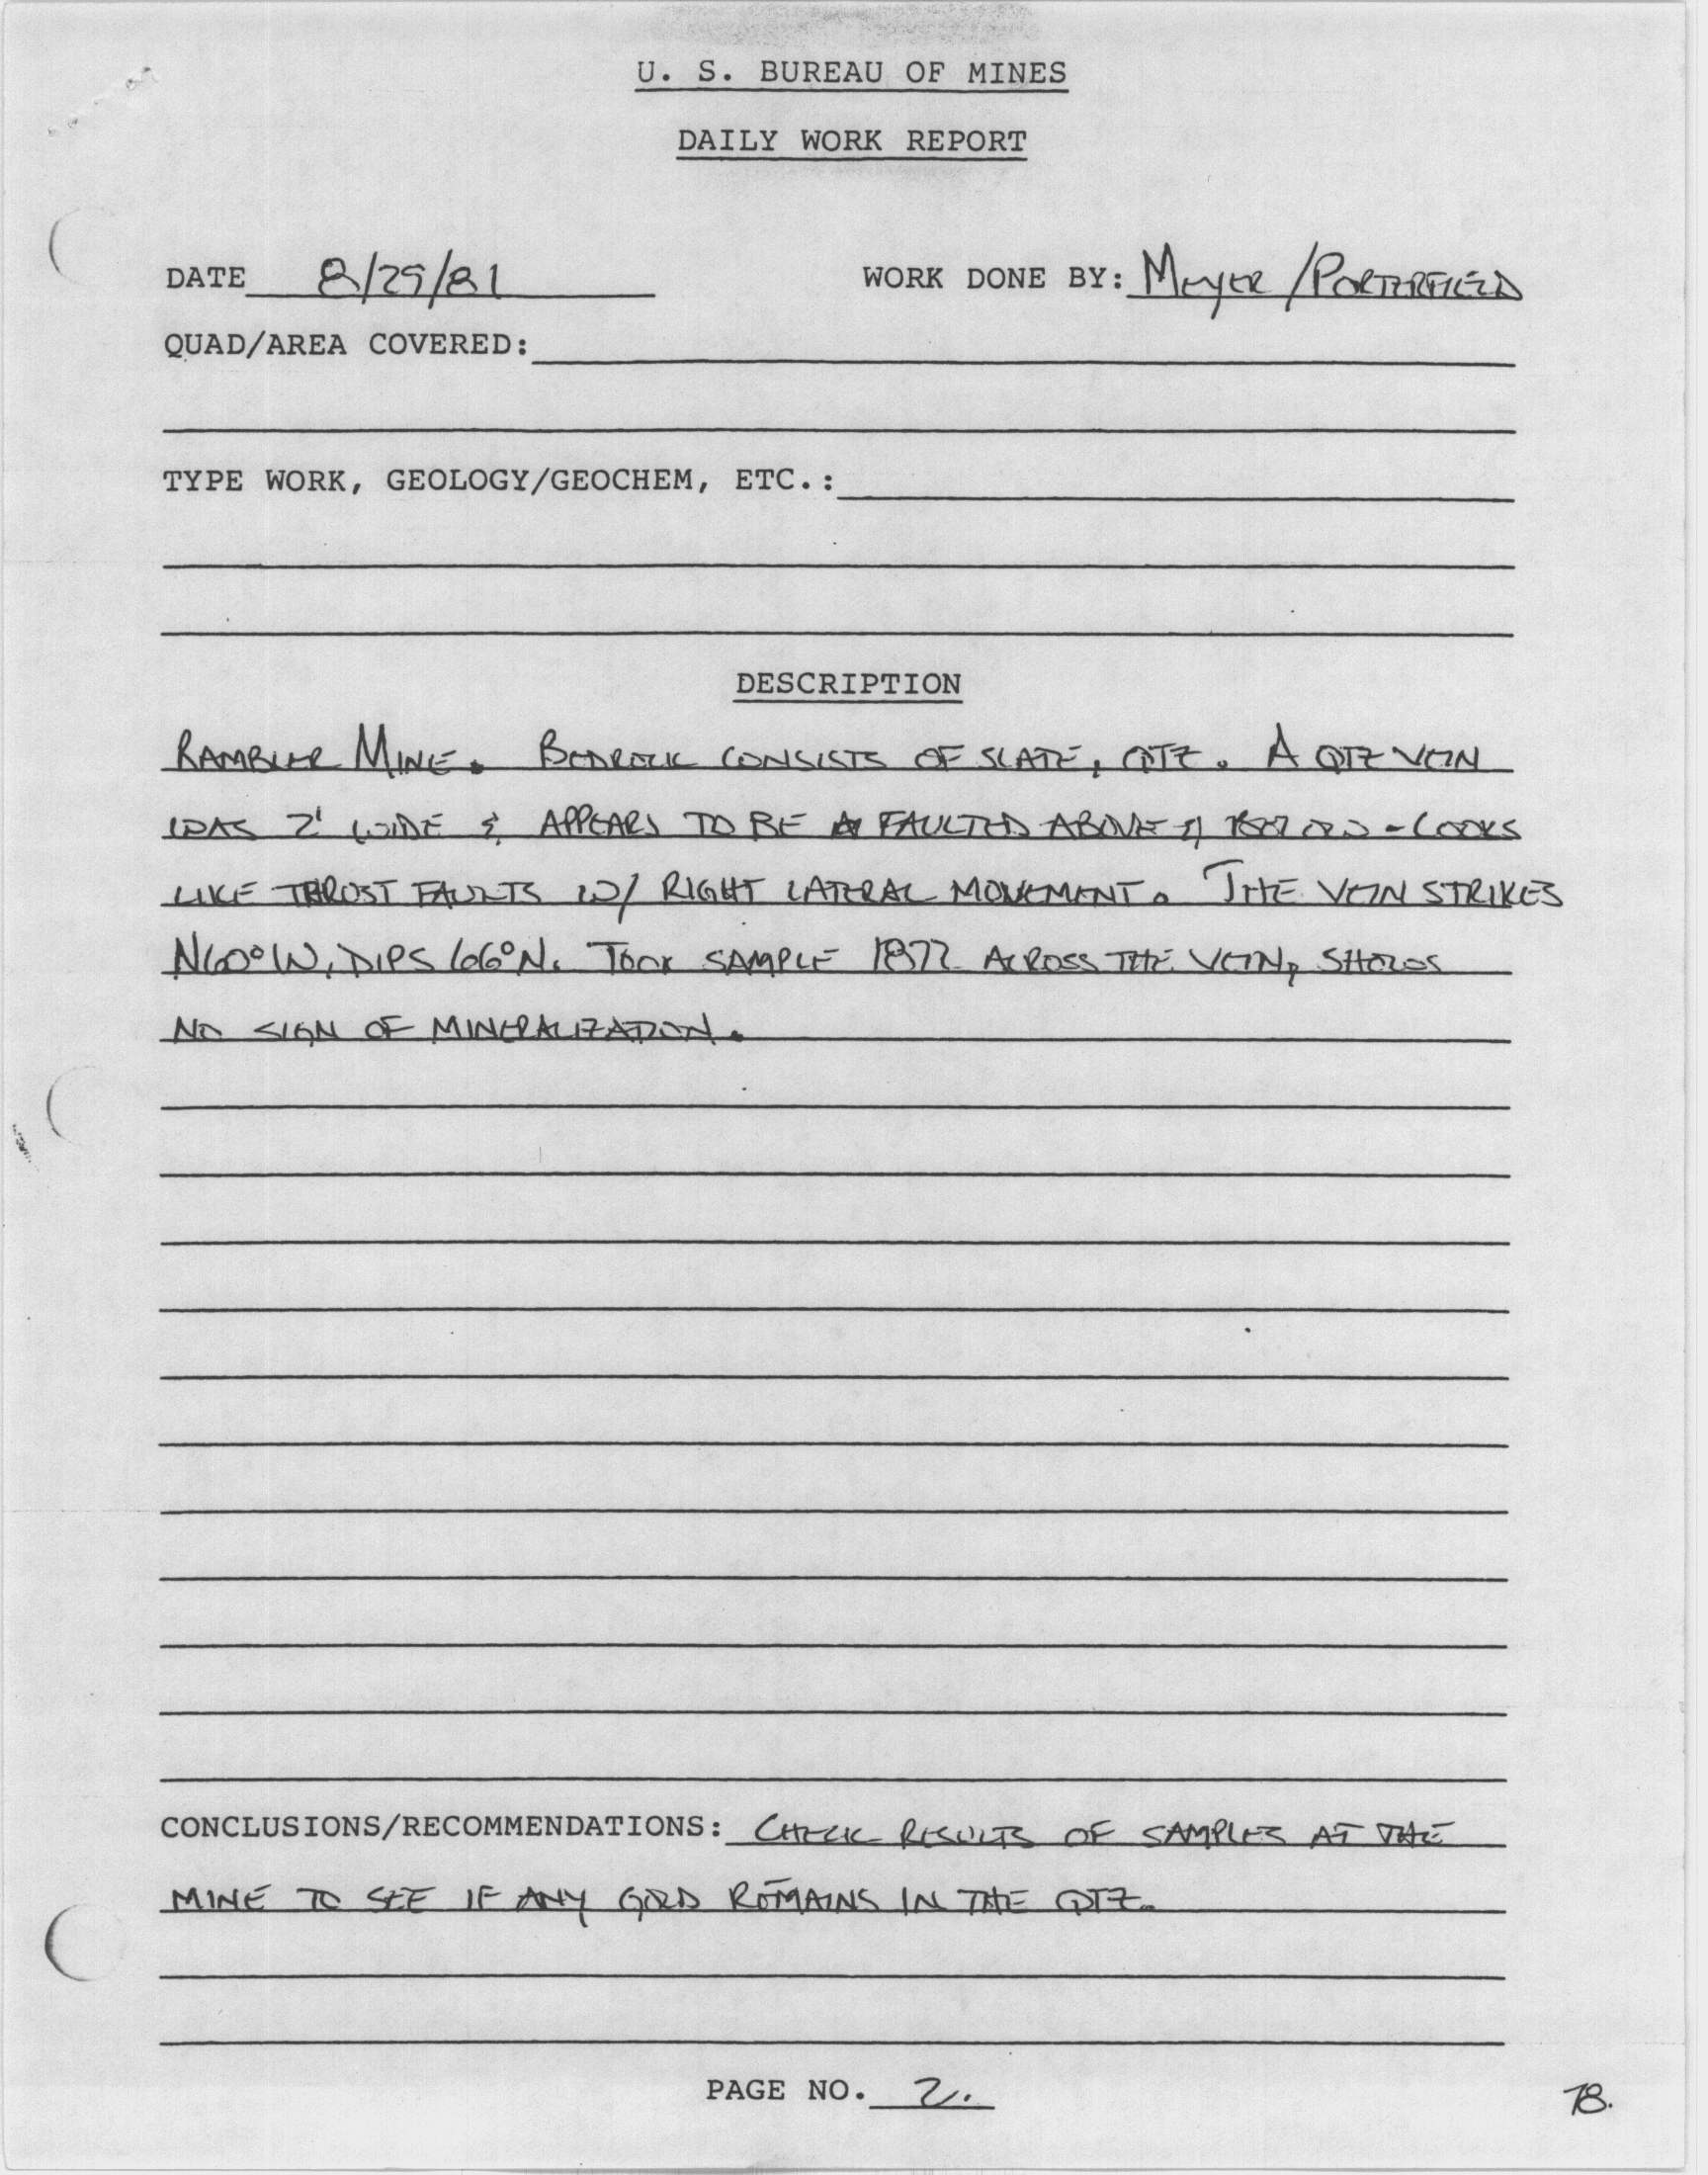 U. S. BUREAU OF MINES
DAILY WORK REPORT
DATE 8/29/81 WORK DONE BY: MEYER / PORTERFIELD
QUAD/AREA COVERED:
TYPE WORK, GEOLOGY/GEOCHEM, ETC.:
DESCRIPTION
RAMBLER MINE. BEDROCK CONSISTS OF SLATE, QTZ. A QTZ VEIN
WAS 2' WIDE & APPEARS TO BE FAULTED ABOVE & BELOW - LOOKS
LIKE THRUST FAULTS W/ RIGHT LATERAL MOVEMENT. THE VEIN STRIKES
N60°W, DIPS 66°N. TOOK SAMPLE 1872 ACROSS THE VEIN, SHOWS
NO SIGN OF MINERALIZATION.
CONCLUSIONS/RECOMMENDATIONS: CHECK RESULTS OF SAMPLES AT THE
MINE TO SEE IF ANY GOLD REMAINS IN THE QTZ.
PAGE NO. 2.
78.